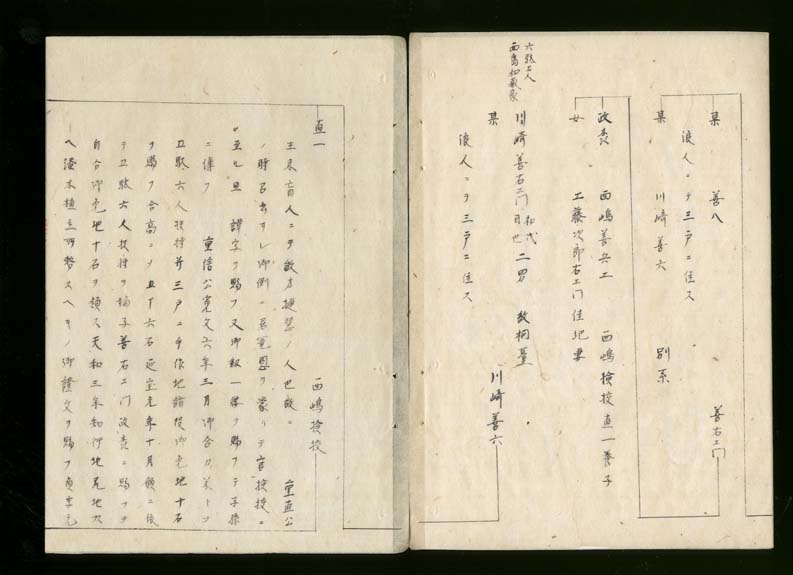 某 善八 善右エ門
浪人ニテ三戸ニ住ス
某 川崎善六 別系
政表 西嶋善兵エ 西嶋検校直一養子
女 工藤次郎右エ門 妻
六駄工人
川崎善右エ門 二男
某 川崎善六
浪人ニテ三戸ニ住ス
西嶋検校
直一
生来盲人ニテ敏才捷慧ノ人也故ニ 重直公
ノ時召出サレ御側ニ 恩ヲ蒙リテ官検校ニ
至ル且 諱字ヲ賜フ又御紋一 ヲ賜フテ子孫
ニ傳フ 重信公寛文六年三月御合力米トシ
五駄六人扶持并三戸ニテ作地 御免地十石
ヲ賜フ合高ニシ五十六石延宝元年十月願ニ依
テ五駄六人扶持ヲ嫡子善右エ門政表ニ賜フテ
自分御免地十石ヲ領ス天和三年知行地尻地九
ヘ漆木植立 スヘキノ御證文ヲ賜フ貞享元